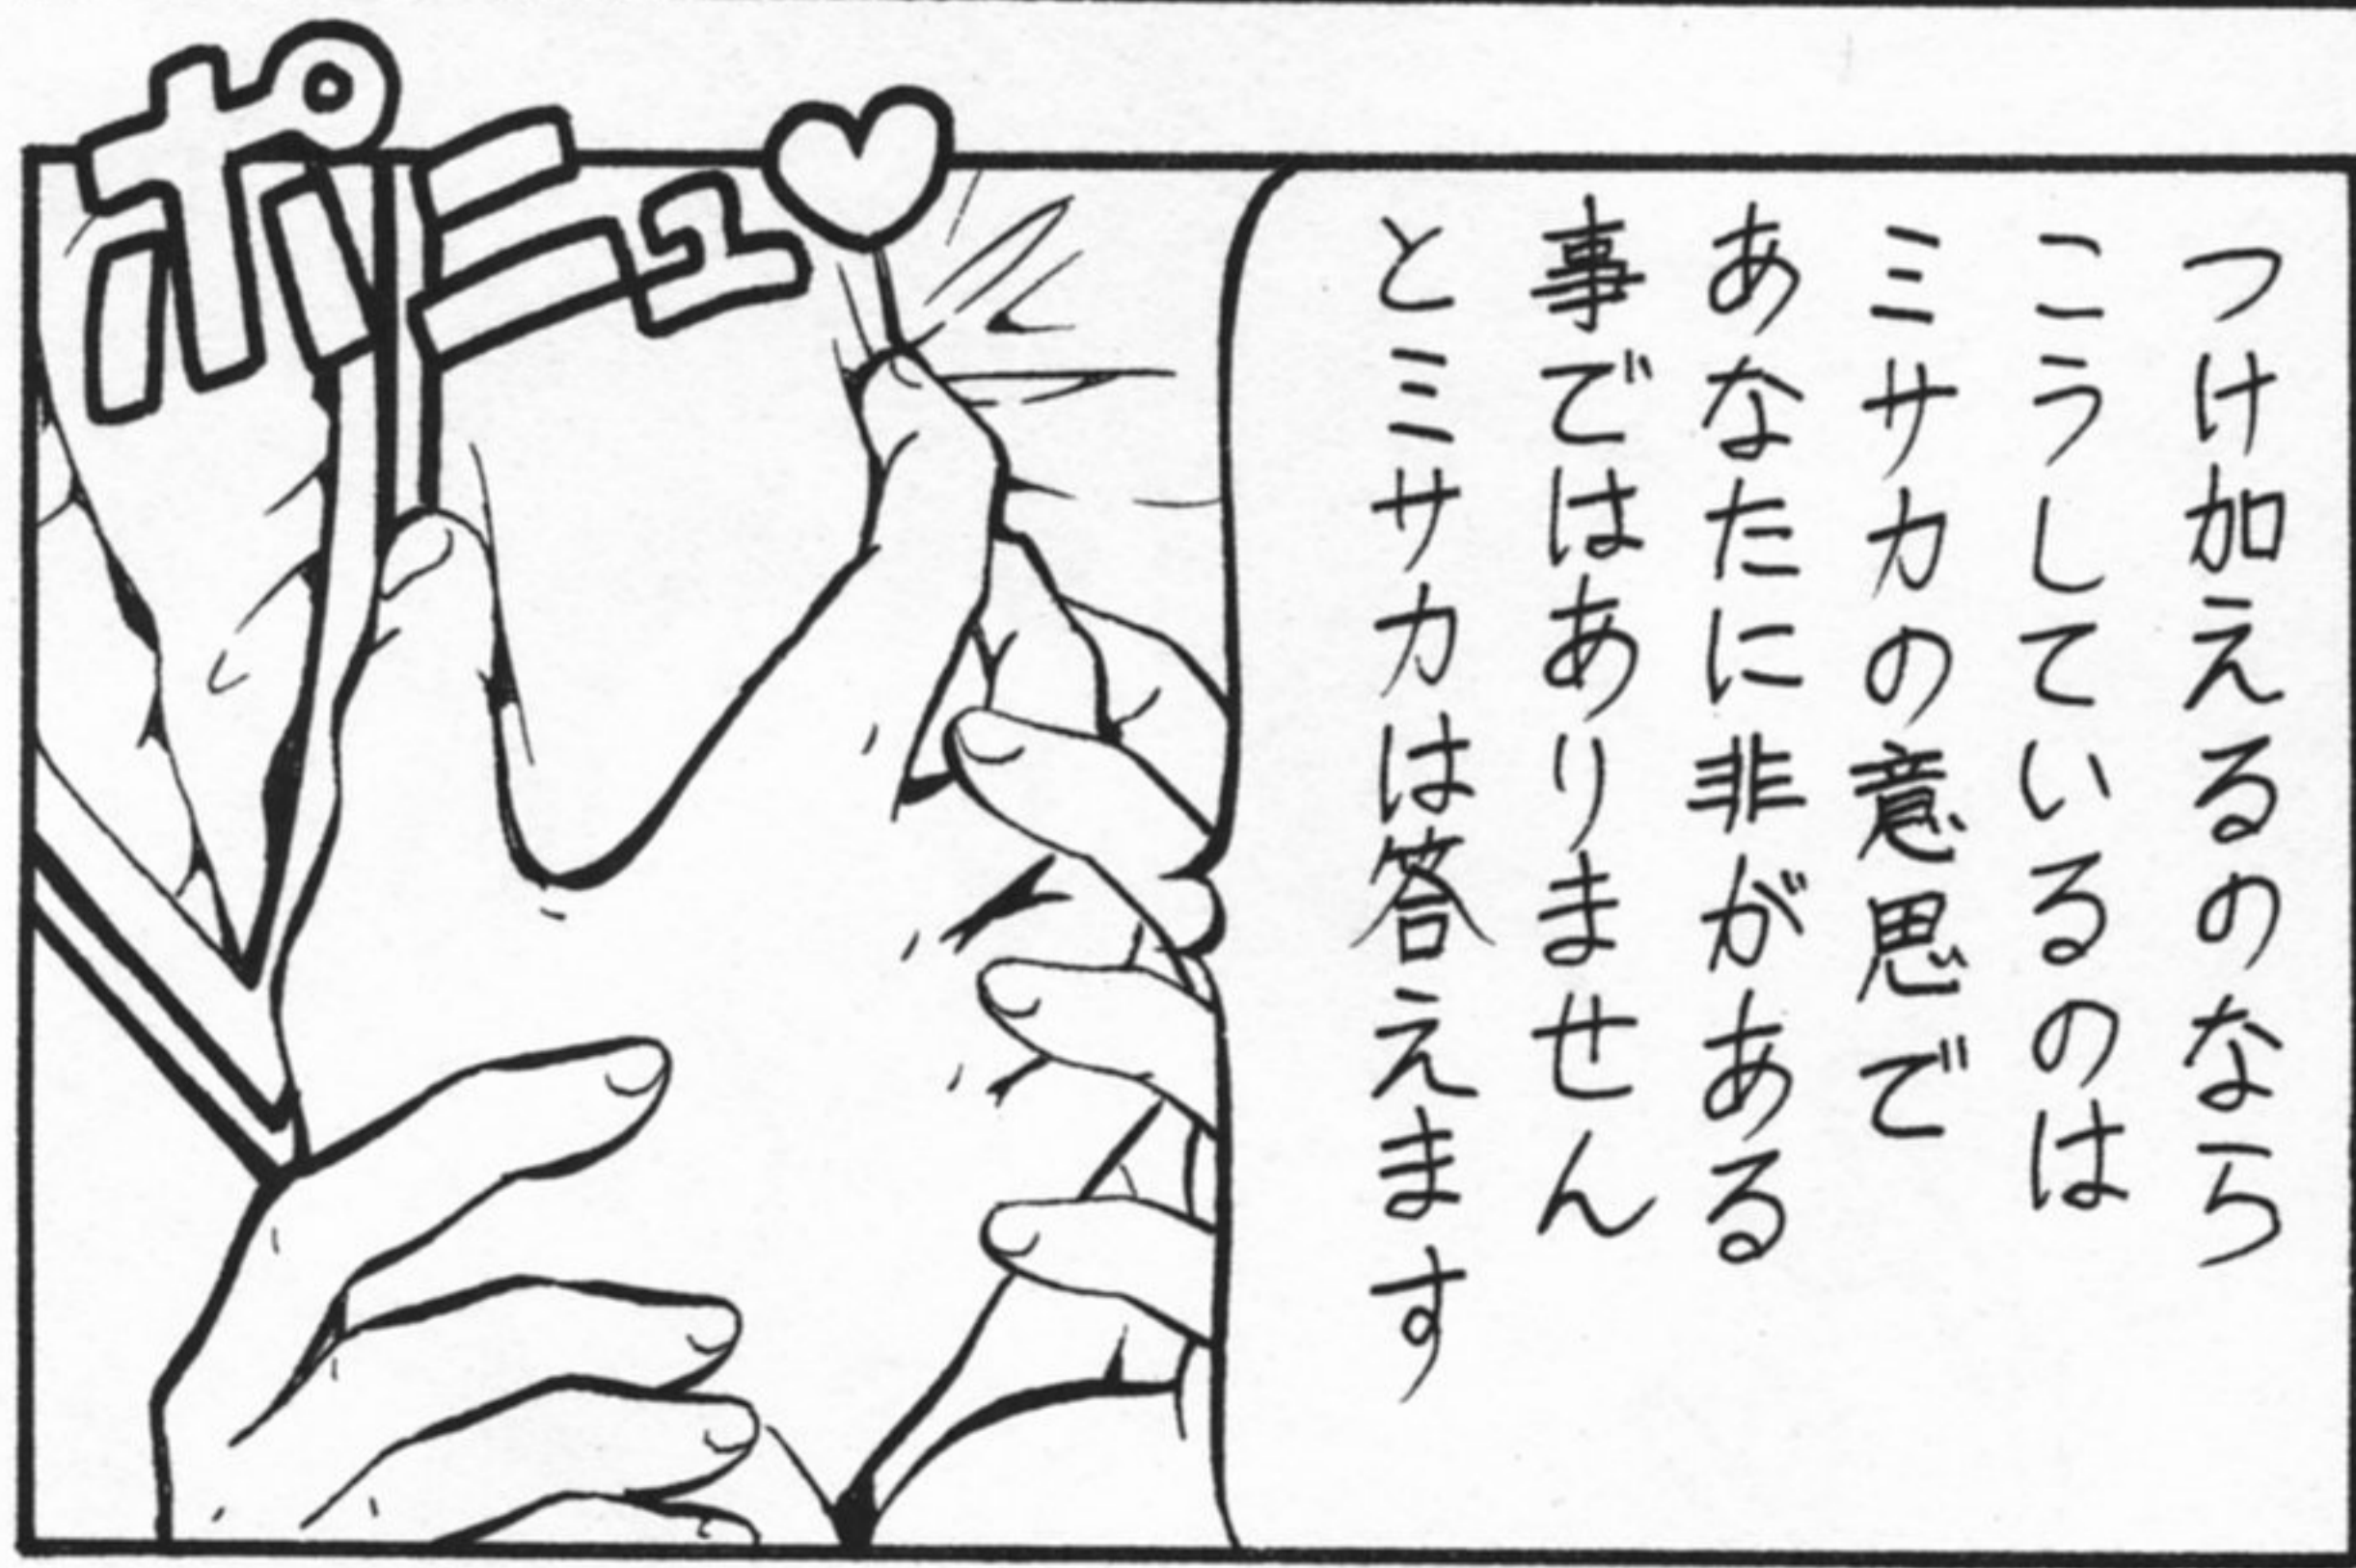 つけ加えるのなら
こうしているのは
ミサカの意思で
あなたに非がある
事ではありません
とミサカは答えます
ポニュ♡